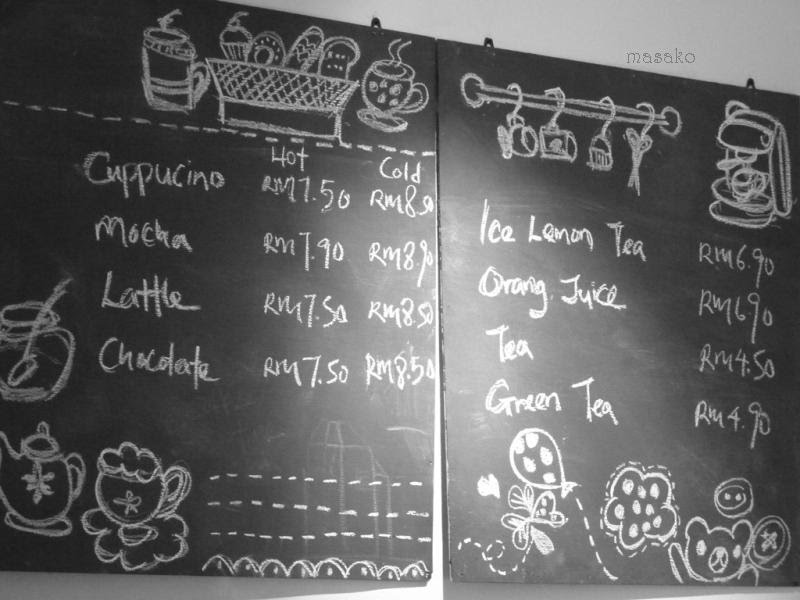 masako
Hot Cold
Cuppucino RM7.50 RM8.50
Mocha RM7.90 RM8.90
Lattle RM7.50 RM8.50
Chocolate RM7.50 RM8.50
Ice Lemon Tea RM6.90
Orang Juice RM6.90
Tea RM4.50
Green Tea RM4.90